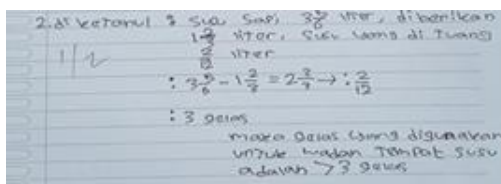 2. di ketahui : susu sapi 3 5/6 liter, diberikan
1 2/3 liter, susu yang di tuang
2/12 liter
1/2
: 3 5/6 - 1 2/3 = 2 3/7 → : 2/12
: 3 gelas
maka gelas yang digunakan
untuk wadah tempat susu
adalah 73 gelas